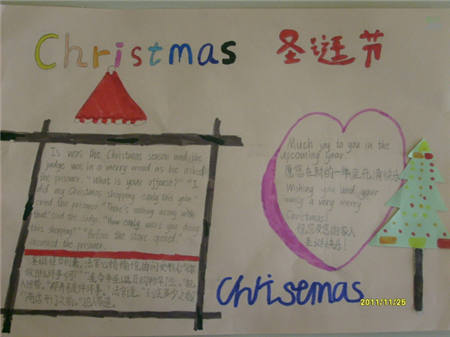 Christmas 圣诞节
Is was the Christmas season and the
judge was in a merry mood as he asked
the prisoner, "What is your offense?" "I
did my Christmas shopping early this year"
cried the prisoner "There's nothing wrong with
that" said the judge. "How early were you doing
this shopping?" "Before the store opened"
answered the prisoner.
Much joy to you in the
upcoming year.
愿您在新的一年里充满快乐
Wishing you and your
family a very merry
Christmas!
祝您及您的家人
圣诞快乐!
Chrisemas
2011/11/25